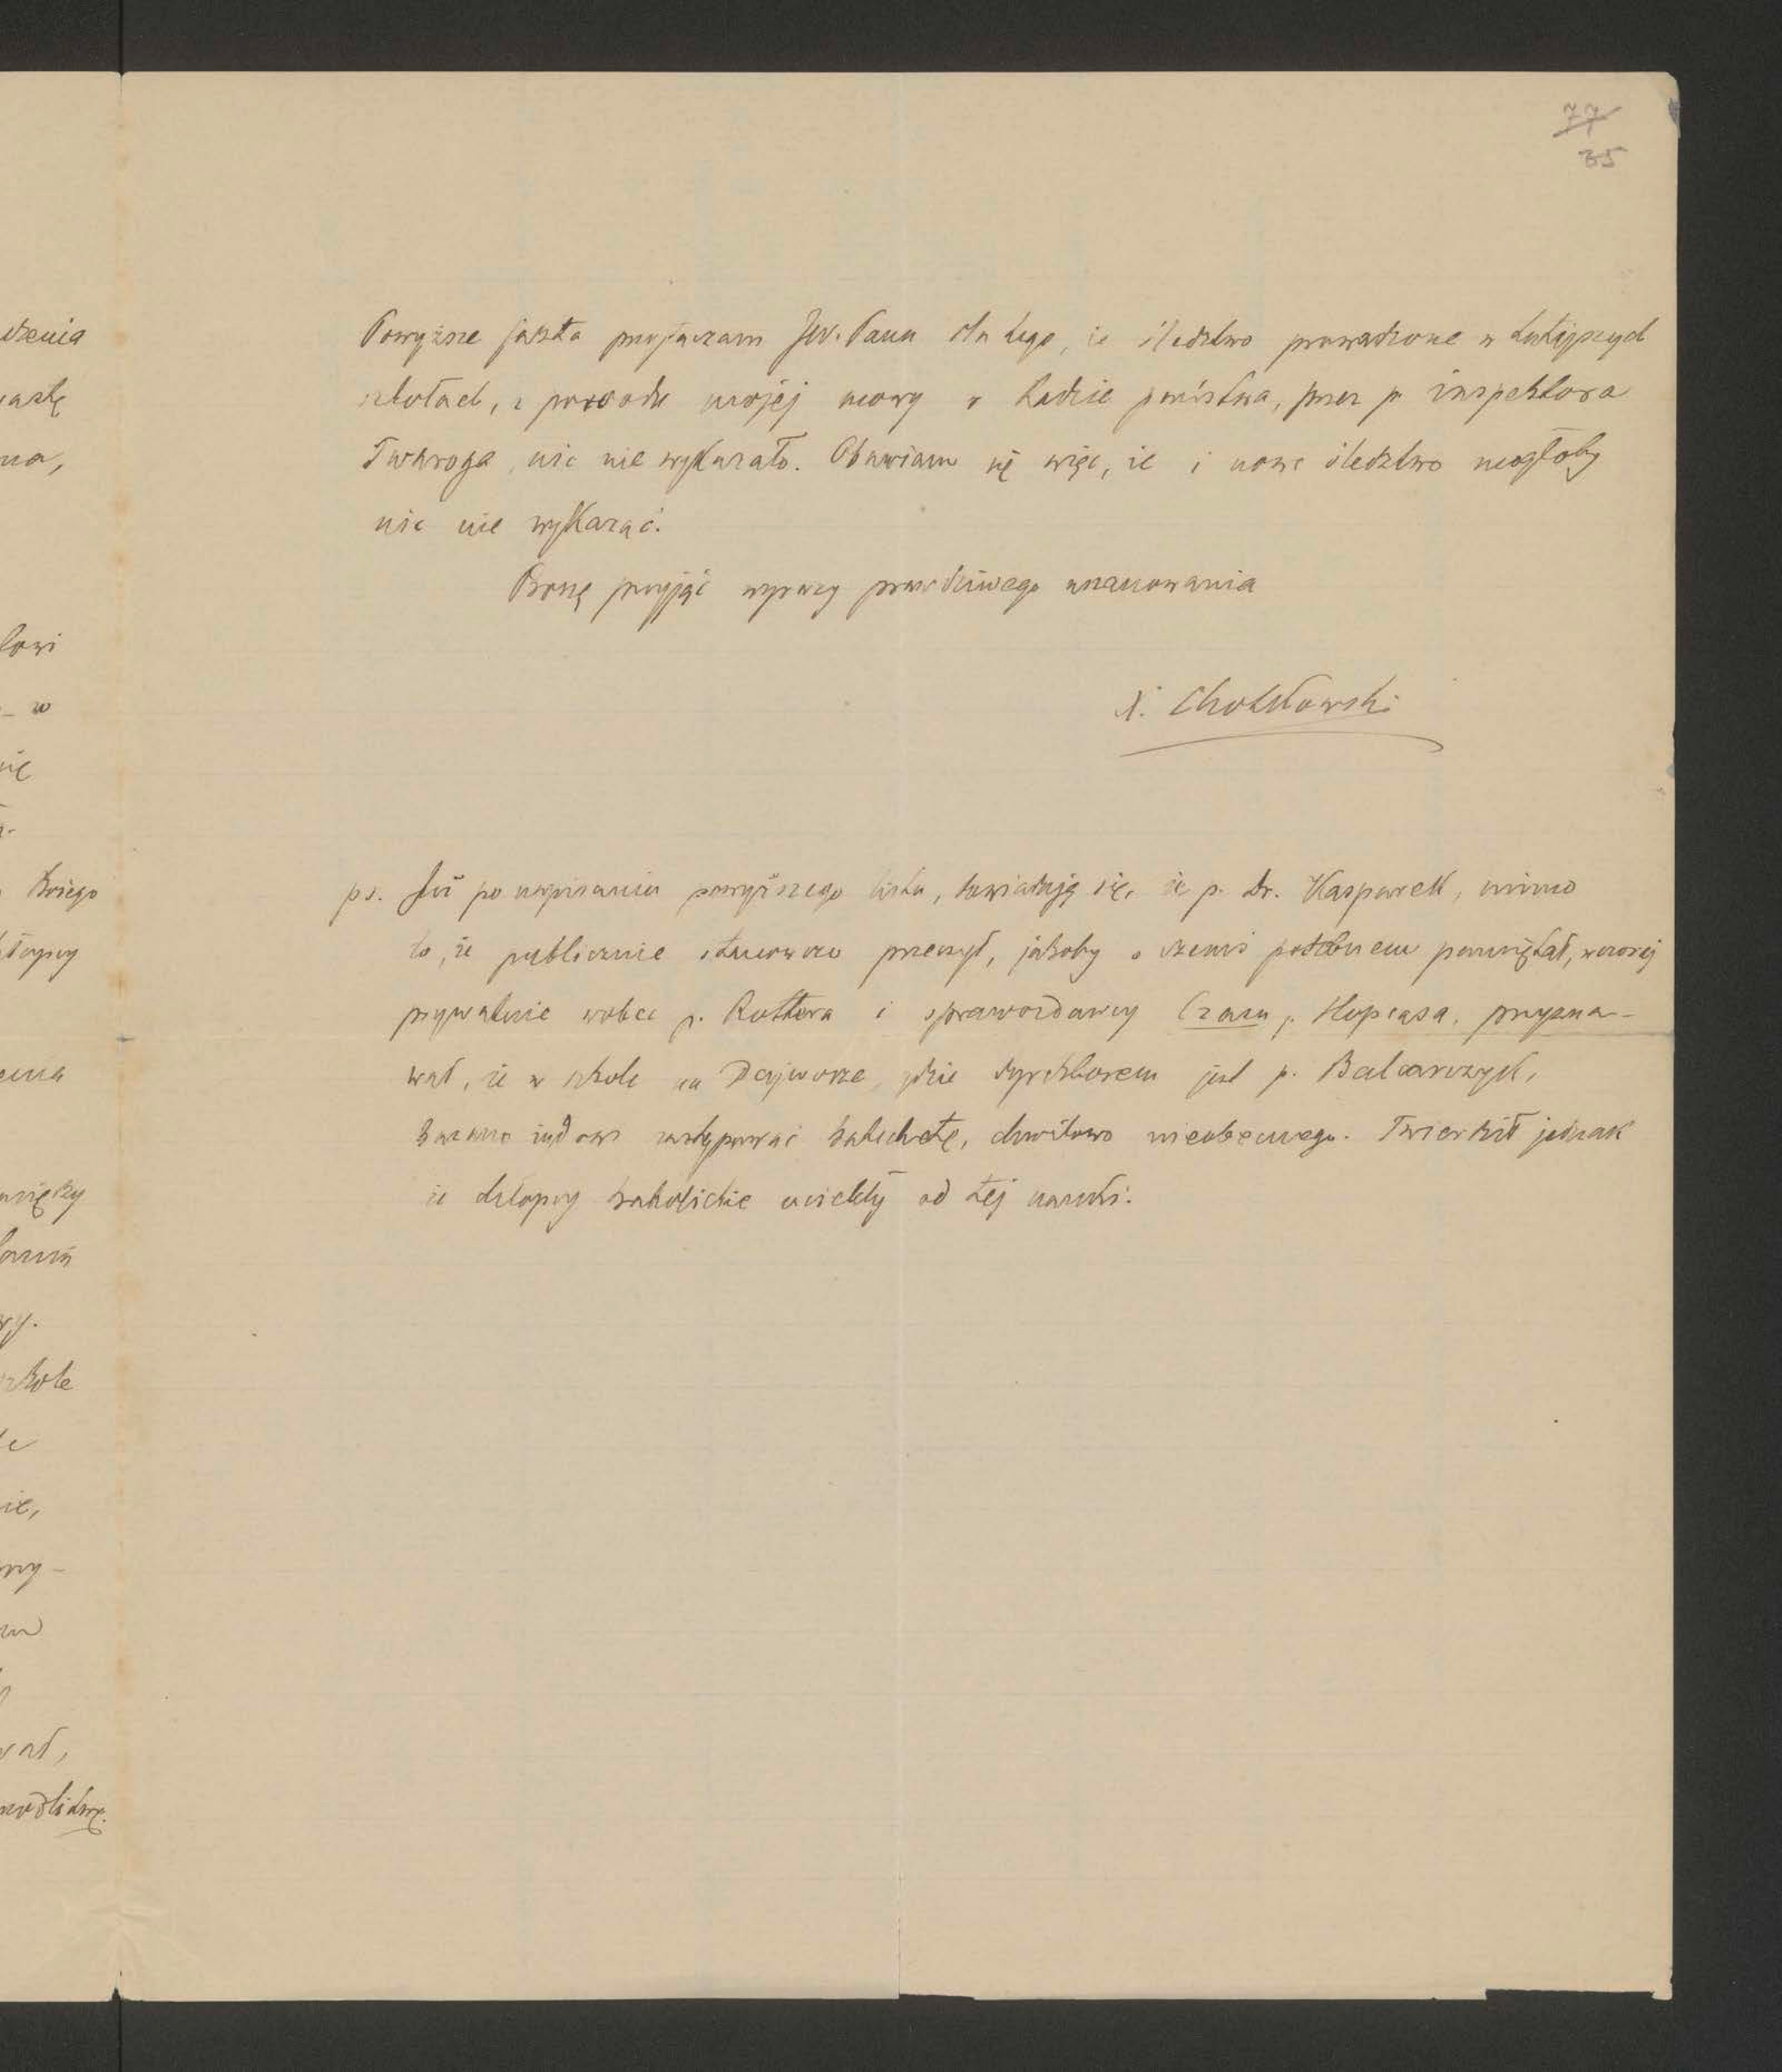 77
35
Powyższe fakta przytaczam JW. Panu dla tego, że śledztwo prowadzone w tutejszych
szkołach, z powodu mojéj mowy w Radzie państwa, przez p inspektora
Twaroga, nic nie wykazało. Obawiam się więc, że i nowe śledztwo mogłoby
nic nie wykazać.
Proszę przyjąć wyrazy prawdziwego uszanowania
X. Chotkowski
ps. Już po napisaniu powyższego listu, dowiaduję się, że p. Dr. Kasparek, mimo
to, że publicznie stanowczo przeczył, jakoby o czemś podobnem pamiętał, wczoraj
prywatnie wobec p. Rottera i sprawozdawcy Czasu p. Hopcasa, przyzna-
wał, że w szkole na Dajworze, gdzie dyrektorem jest p. Balcarczyk,
kazano żydowi zastępować katechetę, chwilowo nieobecnego. Twierdził jednak
że chłopcy katolickie uciekły od tej nauki.
dzenia
na,
w
kiego
szkole
nie,
wał,
modlitwę.